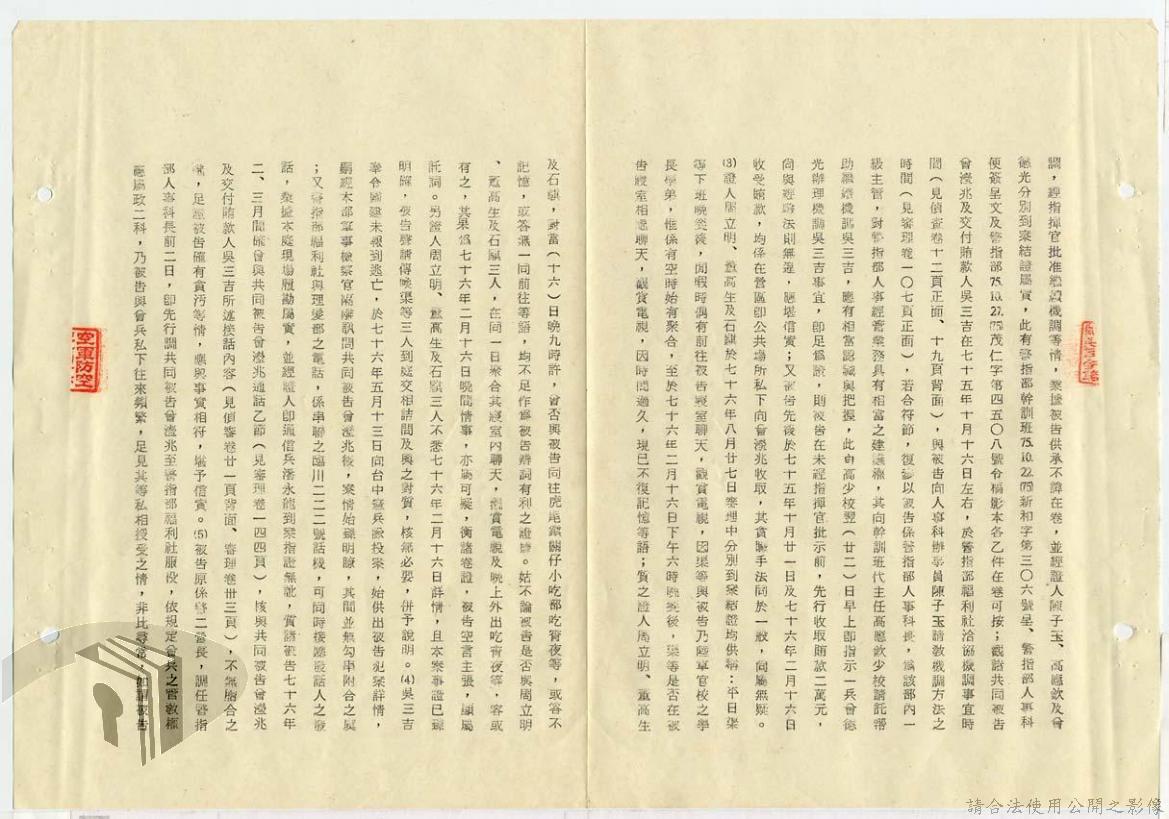 調，經指揮官批准繼續機調等情，業據被告供承不諱在卷，並經證人陳子玉、高應欽及曾
德光分別到案結證屬實，此有警指部幹訓班75.10.22.(75)新和字第三○六號呈、警指部人事科
便簽呈文及警指部75.10.27.(75)茂仁字第四五○八號令稿影本各乙件在卷可按；觀諸共同被告
曾瀅兆及交付賄款人吳三吉在七十五年十月十六日左右，於警指部福利社洽協機調事宜時
間（見偵查卷十二頁正面、十九頁背面），與被告向人事科辦事員陳子玉請教機調方法之
時間（見審理卷一○七頁正面），若合符節，復參以被告係警指部人事科長，為該部內一
級主管，對警指部人事經管業務具有相當之建議權，其向幹訓班代主任高應欽少校請託帶
助繼續機調吳三吉，應有相當認識與把握，此由高少校翌（廿二）日早上即指示一兵曾德
光辦理機調吳三吉事宜，即足為證，則被告在未經指揮官批示前，先行收取賄款二萬元，
尚與經驗法則無違，應堪信實；又被告先後於七十五年十月廿一日及七十六年二月十六日
收受賄款，均係在營區即公共場所私下向曾瀅兆收取，其貪瀆手法同於一般，尚屬無疑。
(3)證人周立明、董高生及石麒於七十六年八月廿七日審理中分別到案結證均供稱：平日渠
等下班晚餐後，閒暇時偶有前往被告寢室聊天，觀賞電視，因渠等與被告乃陸軍官校之學
長學弟，惟係有空時始有聚合，至於七十六年二月十六日下午六時晚餐後，渠等是否在被
告寢室相處聊天，觀賞電視，因時間過久，現已不復記憶等語；質之證人周立明、董高生
及石麒，對當（十六）日晚九時許，曾否與被告同往虎尾鎮關仔小吃部吃宵夜等，或答不
記憶，或答無一同前往等語，均不足作為被告辯詞有利之證據。姑不論被告是否與周立明
、董高生及石麒三人，在同一日聚合其寢室內聊天，觀賞電視及晚上外出吃宵夜等，容或
有之，其果為七十六年二月十六日晚間情事，亦屬可疑，衡諸卷證，被告空言主張，顯屬
託詞。另證人周立明、董高生及石麒三人不悉七十六年二月十六日詳情，且本案事證已臻
明確，被告聲請傳喚渠等三人到庭交相詰問及與之對質，核無必要，併予說明。(4)吳三吉
奉令國建未報到逃亡，於七十六年五月十三日向台中憲兵隊投案，始供出被告犯案詳情，
嗣經本部軍事檢察官隔離訊問共同被告曾瀅兆後，案情始臻明瞭，其間並無勾串附合之虞
；又警指部福利社與理髮部之電話，係串聯之臨川二二二號話機，可同時接聽發話人之發
話，業據本庭現場履勘屬實，並經證人即通信兵潘永龍到案指證無訛，質諸被告七十六年
二、三月間確曾與共同被告曾瀅兆通話乙節（見審理卷一四四頁），核與共同被告曾瀅兆
及交付賄款人吳三吉所述接話內容（見偵審卷廿一頁背面、審理卷卅三頁），不無脗合之
處，足證被告確有貪污等情，應與事實相符，堪予信實。(5)被告原係警二營長，調任警指
部人事科長前二日，即先行調共同被告曾瀅兆至警指部福利社服役，依規定營兵之管教權
應屬政二科，乃被告與曾兵私下往來頻繁，足見其等私相授受之情，非比尋常，如謂被告
空軍防空
請合法使用公開之影像